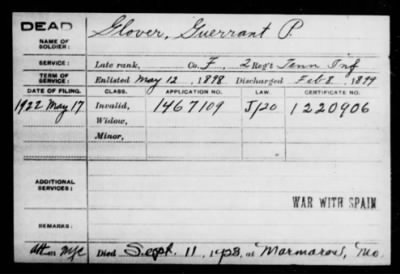 DEAD
NAME OF SOLDIER: Glover, Guerrant P.
SERVICE: Late rank, Co. F, 2 Reg't Tenn Inf
TERM OF SERVICE: Enlisted May 12, 1898 Discharged Feb 8, 1899
DATE OF FILING. CLASS. APPLICATION NO. LAW. CERTIFICATE NO.
1922 May 17 Invalid, 1467109 1220906
Widow,
Minor,
ADDITIONAL SERVICES:
WAR WITH SPAIN
REMARKS:
Died Sept. 11, at Mo.